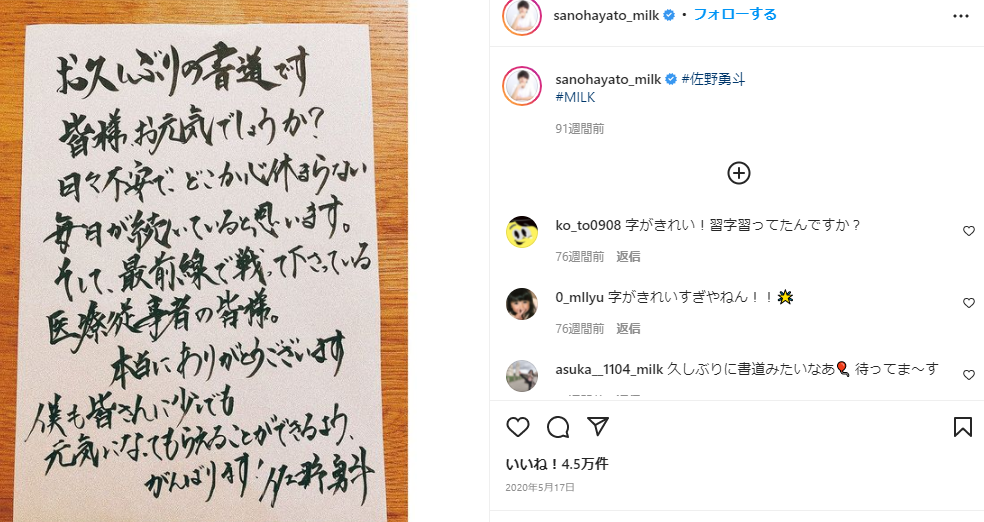 お久しぶりの書道です
皆様、お元気でしょうか?
日々不安で、どこか心休まらない
毎日が続いていると思います。
そして、最前線で戦って下さっている
医療従事者の皆様。
本当にありがとうございます
僕も皆さんに少しでも
元気になってもらえることができるよう、
がんばります! 佐野勇斗
sanohayato_milk • フォローする
sanohayato_milk #佐野勇斗
#MILK
91週間前
ko_to0908 字がきれい！習字習ってたんですか？
76週間前 返信
0_mllyu 字がきれいすぎやねん！！
76週間前 返信
asuka__1104_milk 久しぶりに書道みたいなあ 待ってま〜す
いいね！4.5万件
2020年5月17日